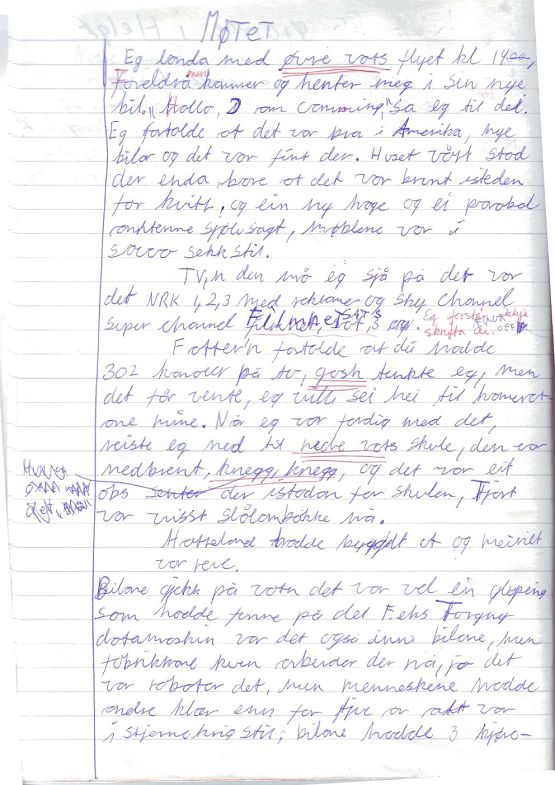 MØTET
Eg landa med øvre vats flyet kl 14⁰⁰,
Foreldra mine kommer og henter meg i sin nye
bil. "Hallo, D am comming," Sa eg til dei.
Eg fortalde at det var bra i Amerika, nye
bilar og det var fint der. Huset vårt stod
der enda, bare at det var brent isteden
for kvitt, og ein ny hage og ei parabol
anhtenne sjølvsagt, møblene var i
sacco sekk stil.
TV,n den må eg sjå på det var
det NRK 1,2,3 med reklame og sky channel
super channel FILMNET SAT 3
Eg forstår ikkje
skrifta di,
Fatter'n fortalde at di hadde
302 kanaler på tv, gosh tenkte eg, men
det får vente, eg ville sei hei til kamerat-
ane mine. Når eg var ferdig med det,
reiste eg ned til nedre vats skule, den var
nedbrent, knegg, knegg, og det var eit
obs senter der istedan for skulen, Fjort
var visst Slålombakke nå.
Hatteland hadde bygddt et og meivilt
var reve.
Bilane gjekk på vatn det var vel ein gløping
som hadde funne på det F.eks Torgny
datamaskin var det også inne bilane, men
fabrikkane kven arbeider der nå, jo det
var roboter det, men menneskene hadde
andre klær enn for fjve år att var
i stjernekrig stil; bilane hadde 3 hjøre-